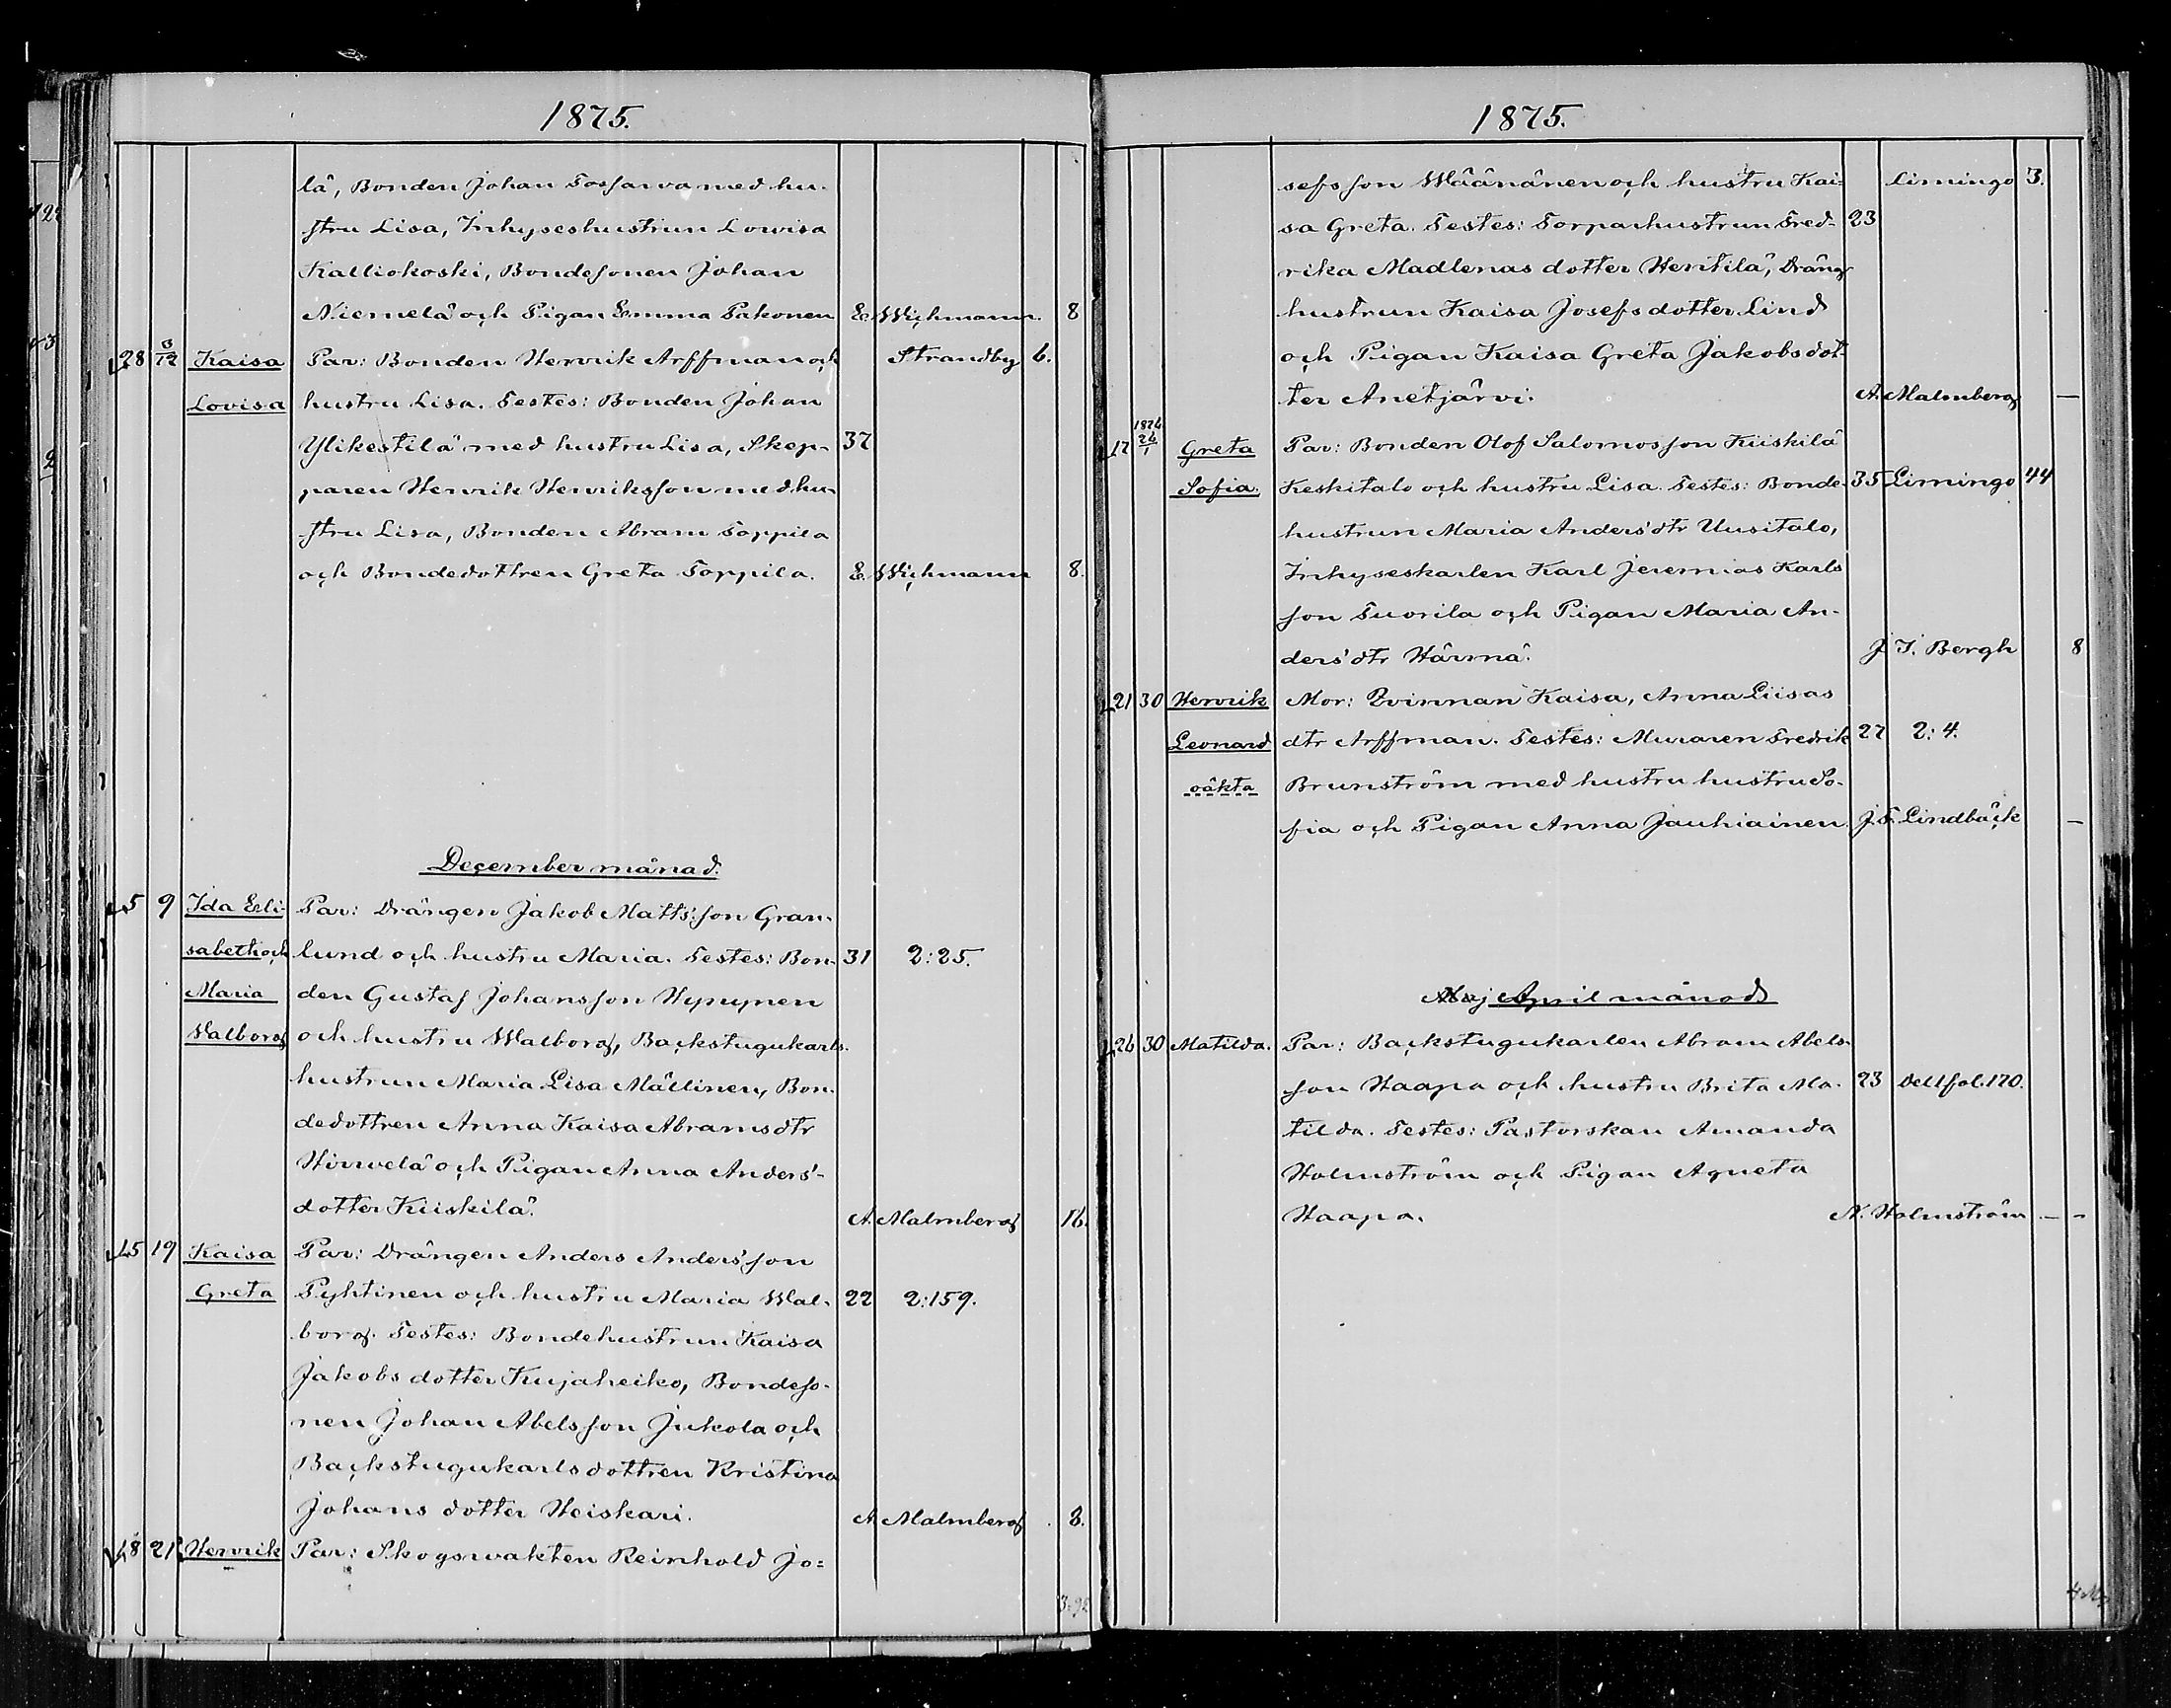 1875.
lä, Bonden Johan Tossawa med hu-
stru Lisa, Inhyseshustrun Lowisa
Kalliokoski, Bondesonen Johan
Niemelä och Pigan Emma Pakonen E. Wichmann. 8
28 3/12 Kaisa Par: Bonden Henrik Arffman och Strandby 6.
Lovisa hustru Lisa. Testes: Bonden Johan
Ylikestilä med hustru Lisa, Skep- 37
paren Henrik Henriksson med hu-
stru Lisa, Bonden Abram Toppila
och Bondedottren Greta Toppila. E. Wichmann 8.
December månad.
5 9 Ida Eli- Par: Drängen Jakob Matts'son Gran-
sabeth och lund och hustru Maria. Testes: Bon- 31 2:25.
Maria den Gustaf Johansson Hypynen
Walborg och hustru Walborg, Backstugukarls-
hustrun Maria Lisa Mällinen, Bon-
dedottren Anna Kaisa Abramsdtr
Hirvelä och Pigan Anna Anders'-
dotter Kiiskilä. A. Malmberg 16.
15 19 Kaisa Par: Drängen Anders Anders'son
Greta Pyhtinen och hustru Maria Wal- 22 2:159.
borg. Testes: Bondehustrun Kaisa
Jakobs dotter Kujaheiko, Bondeso-
nen Johan Abelsson Jukola och
Backstugukarlsdottren Kristina
Johans dotter Heiskari. A Malmberg 8.
18 21 Henrik Par: Skogsvakten Reinhold Jo=
1875.
sefsson Wäänänen och hustru Kai= Limingo 3.
sa Greta. Testes: Torparhustrun Fred- 23
rika Madlenas dotter Hentilä, Dräng
hustrun Kaisa Josefs dotter Lind
och Pigan Kaisa Greta Jakobs dot-
ter Anetjärvi. A. Malmberg —
1876.
17 26/1 Greta Par: Bonden Olof Salomosson Kiiskilä
Sofia. Keskitalo och hustru Lisa. Testes: Bonde- 35 Limingo 44
hustrun Maria Anders'dtr Uusitalo,
Inhyseskarlen Karl Jeremias Karls
son Tuorila och Pigan Maria An-
ders'dtr Härmä. J. I. Bergh 8
21 30 Henrik Mor: Qvinnan Kaisa, Anna Liisas
Leonard dtr Arffman. Testes: Muraren Fredrik 27 2:4.
oäkta Brunström med hustru hustru So-
fia och Pigan Anna Jauhiainen. J. F. Lindbäck —
Maj April månad
26 30 Matilda. Par: Backstugukarlen Abram Abels-
son Haapa och hustru Brita Ma- 23 Dell fol. 170.
tilda. Testes: Pastorskan Amanda
Holmström och Pigan Agneta
Haapa. N. Holmström — -